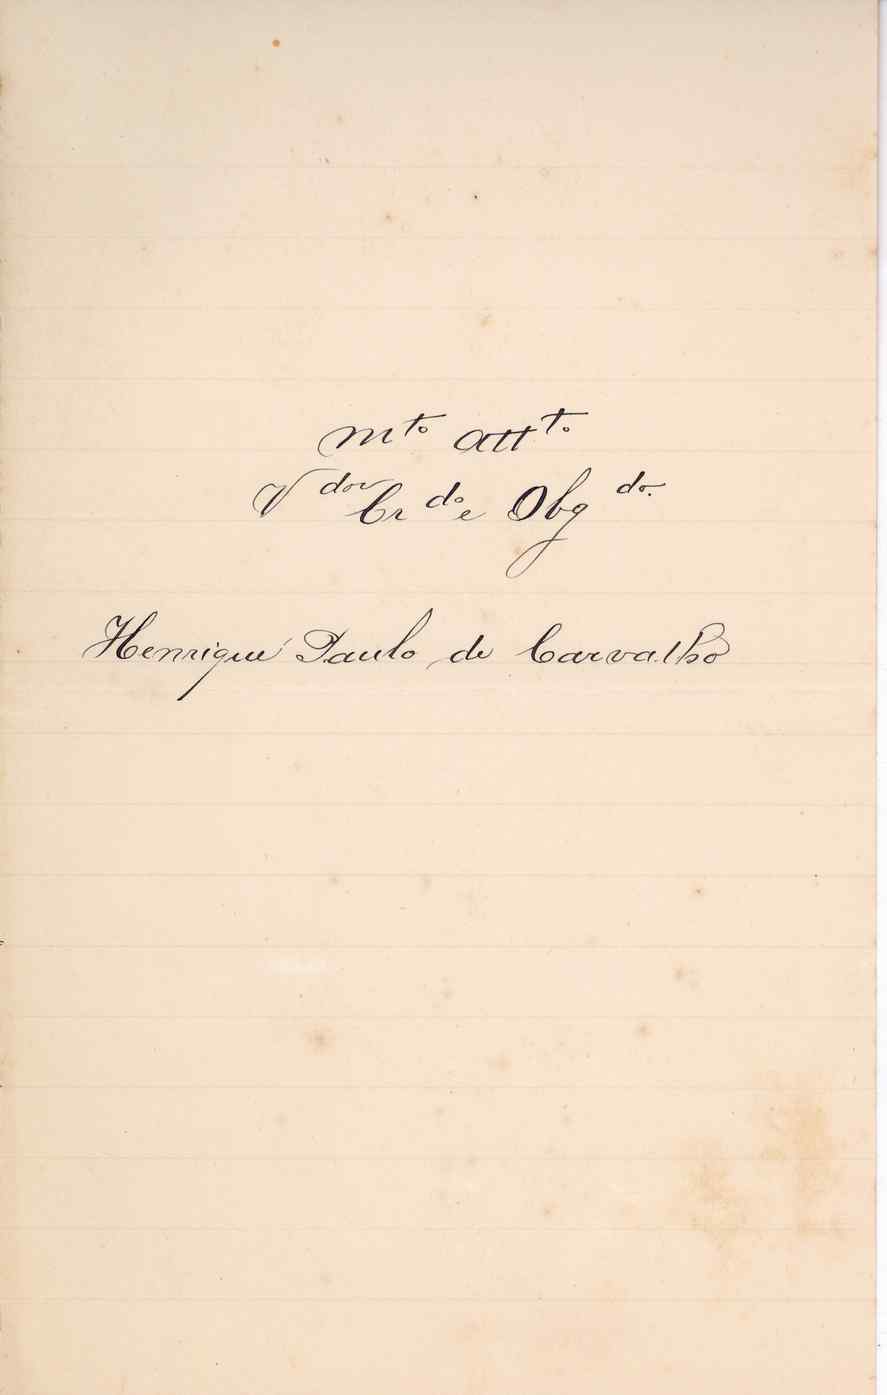 Mto Attto.
Vdor Crdo e Obgdo.
Henrique Paulo de Carvalho